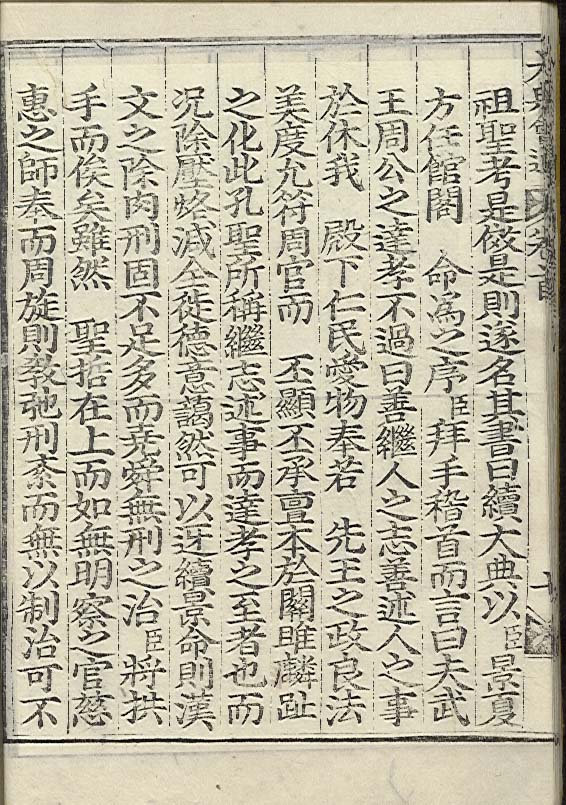 大典會通 卷首
祖聖考是倣是則遂名其書曰續大典以臣景夏
方任館閣 命爲之序臣拜手稽首而言曰夫武
王周公之達孝不過曰善繼人之志善述人之事
於休我 殿下仁民愛物奉若 先王之政良法
美度允符周官而 丕顯丕承亶本於關雎麟趾
之化此孔聖所稱繼志述事而達孝之至者也而
况除壓𦡀减全徙德意藹然可以迓續景命則漢
文之除肉刑固不足多而堯舜無刑之治臣將拱
手而俟矣雖然 聖哲在上而如無明察之官慈
惠之師奉而周旋則敎弛刑紊而無以制治可不